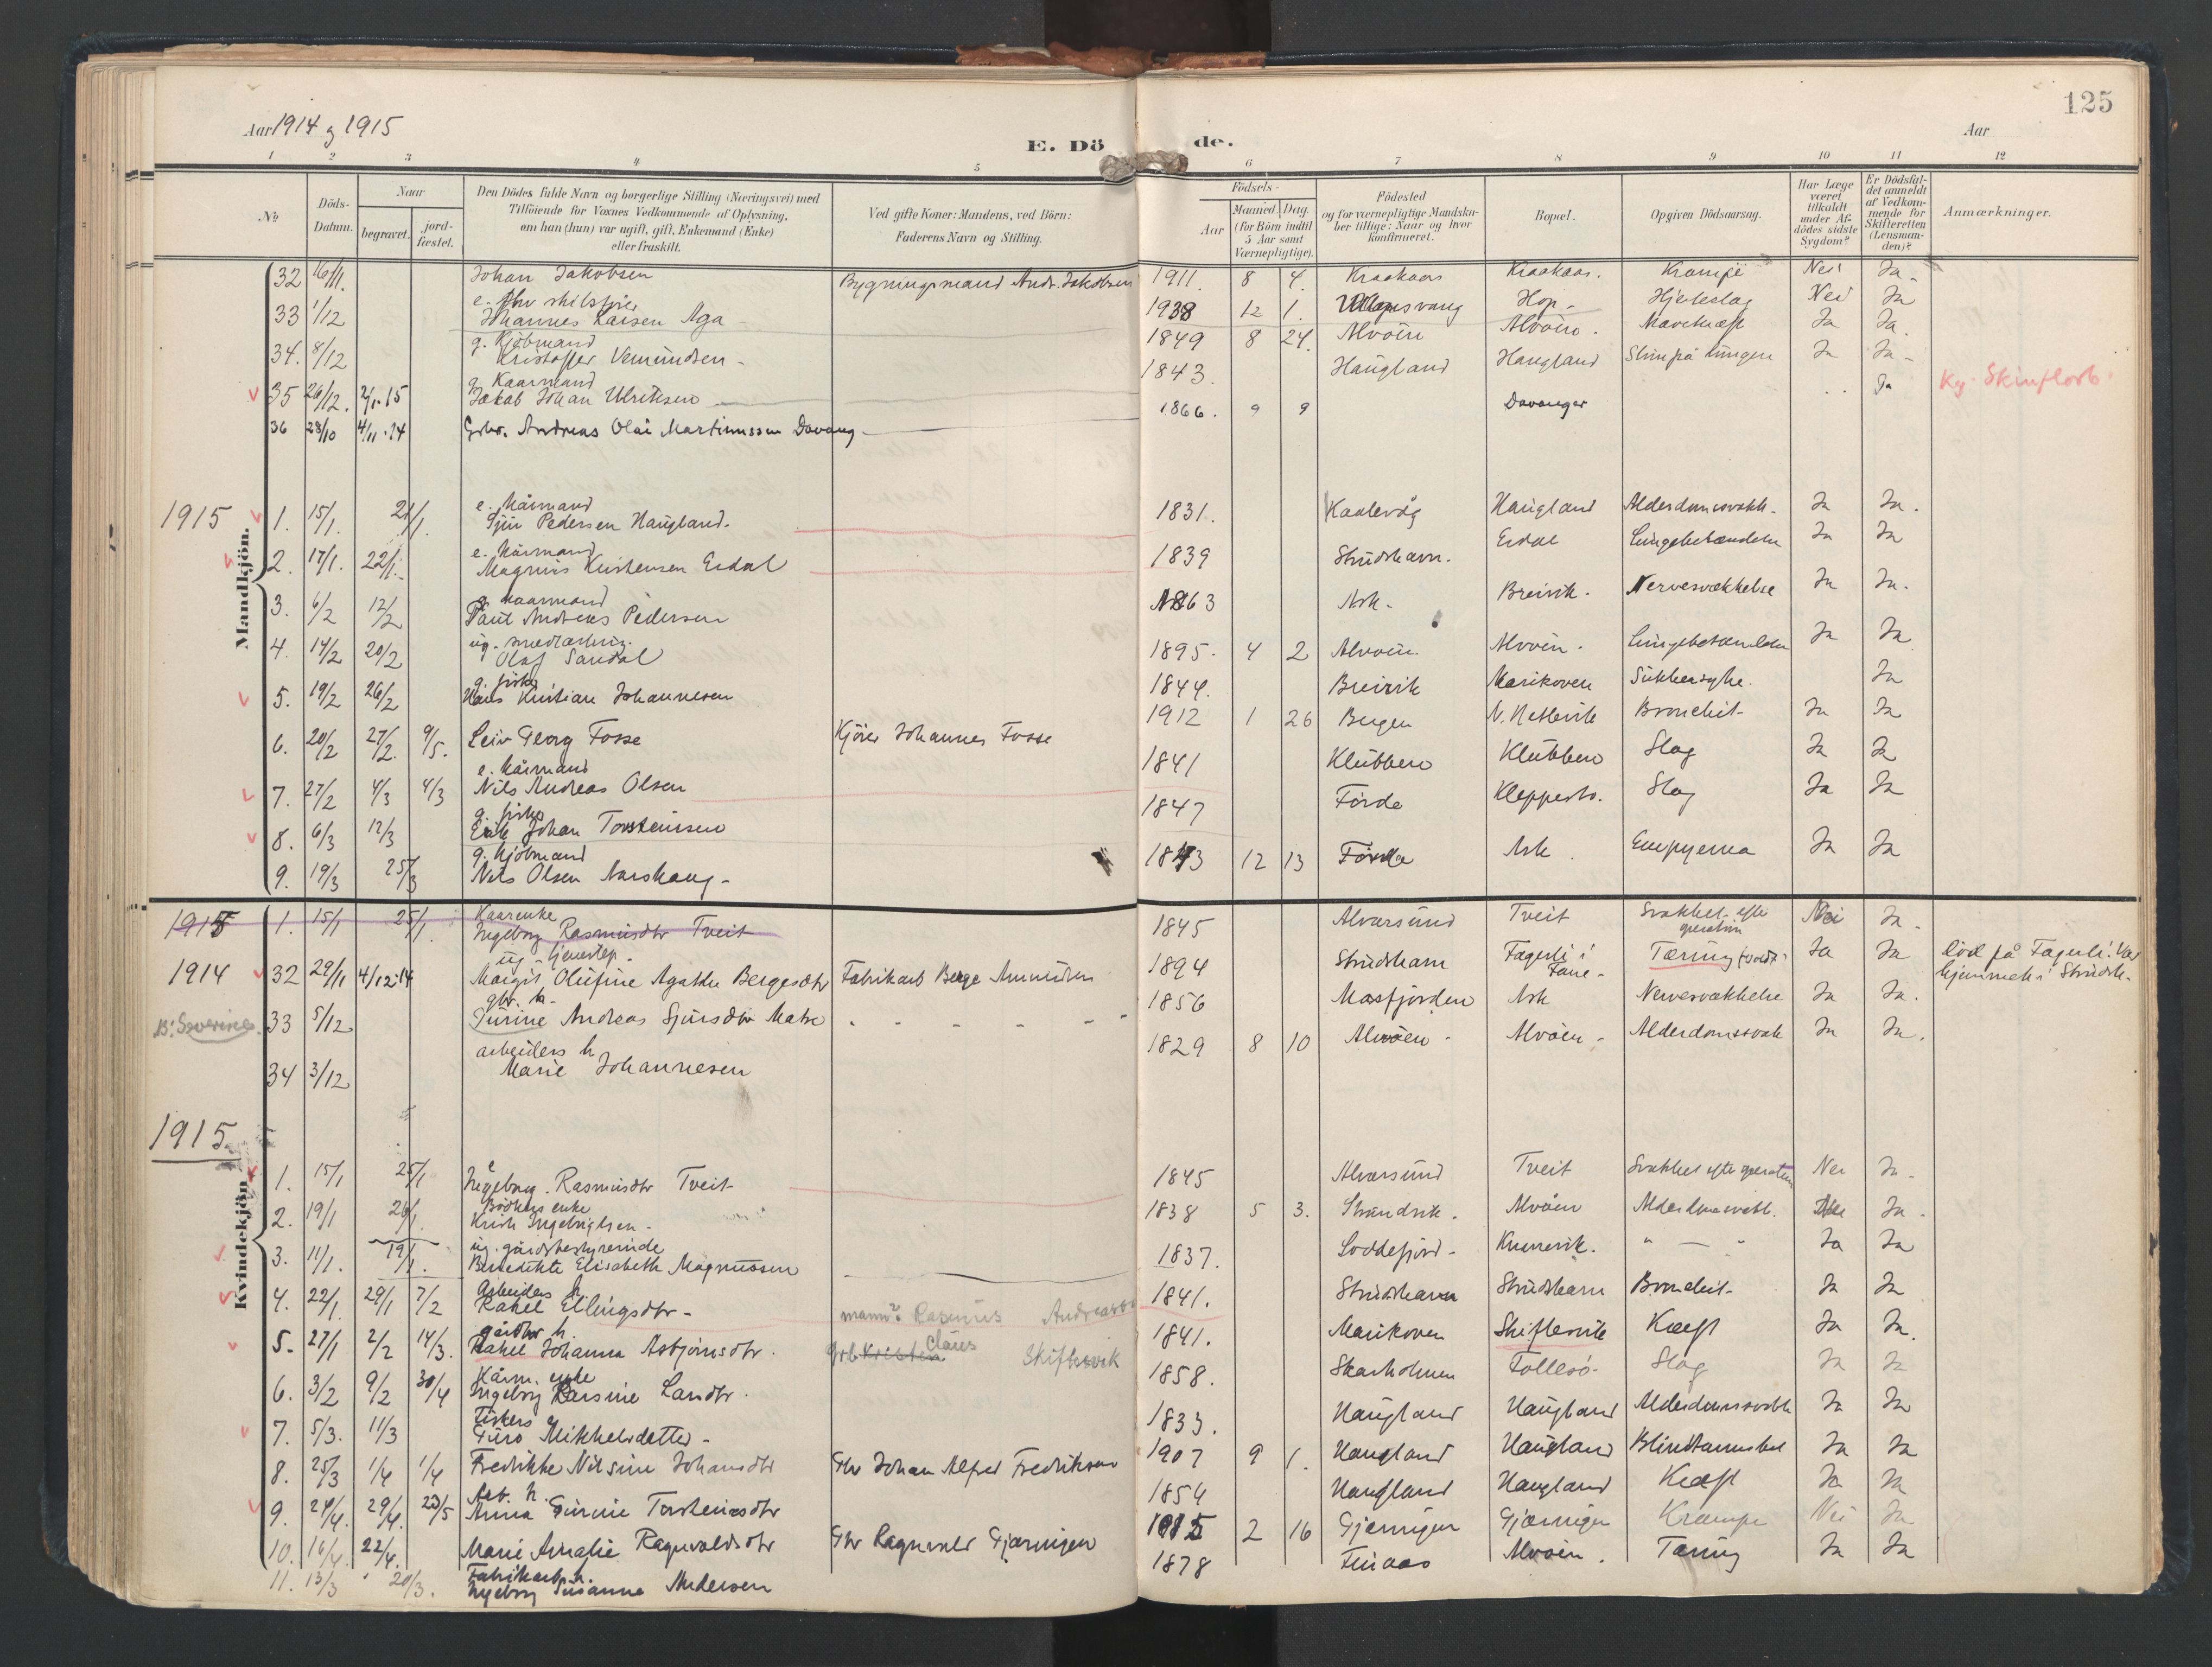 125
Aar 1914 g 1915
E. Dö de.
Aar
1 2 3 4 5 6 7 8 9 10 11 12
No
Döds-Datum.
Naar
begravet.
jord-fæstet.
Den Dödes fulde Navn og borgerlige Stilling (Næringsvei) med
Tilföiende for Voxnes Vedkommende af Oplysning,
om han (hun) var ugift, gift, Enkemand (Enke)
eller fraskilt.
Ved gifte Koner: Mandens, ved Börn:
Faderens Navn og Stilling.
Födsels-
Aar
Maaned. Dag.
(for Börn indtil
5 Aar samt
Værnepligtige).
Födested
og for værnepligtige Mandska-
ber tillige: Naar og hvor
konfirmeret.
Bopæl.
Opgiven Dödsaarsag.
Har Læge
været
tilkaldt
under Af-
dödes sidste
Sygdom?
Er Dödsfal-
det anmeldt
af Vedkom-
mende for
Skifteretten
(Lensman-
den)?
Anmærkninger.
Mandkjön.
32 16/11. Johan Jakobsen Bygningsmand Andr. Jakobsen 1911 8 4. Kraakaas Kraakaas. Krampe Nei Ja
33 1/12 Johannes Larsen Aga 12 1. Hop Hjerteslag Nei Ja
34. 8/12 g. Kjöbmand
Kristoffer Vemundsen 1849 8 24. Alvöen Alvöen. Mavekræft Ja Ja
35 26/12. 2/1-15 g. Kaarmand
Jakob Johan Ulriksen 1843. Haugland Haugland Slim på lungen Ja Ja
36 28/10 4/11-14 Grbr. Andreas Olai Martinussen Davang. 1866. 9 9 Davanger Ja
1915
1. 15/1. 21/1. e. Kårmand
Sjur Pedersen Haugland. 1831. Kaalevåg Haugland Alderdomssvakh. Ja Ja.
2. 17/1. 22/1. e. Kårmand
Magnus Kristensen Erdal 1839 Strudshavn. Erdal Lungebetændelse Ja Ja
3. 6/2 12/2 g. Kaarmand
Paul Andreas Pedersen 1863 Ask Breivik. Nervesvækkelse Ja Ja.
4. 14/2 20/2 ug. smedlærling.
Olaf Sandal 1895. 4 2 Alvöen. Alvöen. Lungebetændelse Ja Ja
5. 19/2 26/2 g. fisker
Hans Kristian Johannesen 1844. Breivik Marikoven Sukkersyke. Ja
6. 20/2 27/2. 9/5. Leiv Georg Fosse Kjörer Johannes Fosse 1912 1 26 Bergen N. Hetlevik Bronchit Ja Ja
7. 27/2 4/3 4/3 e. Kårmand
Nils Andreas Olsen 1841 Klubben Klubben Slag Ja Ja
8. 6/3 12/3 g. fisker
Erik Johan Torsteinsen 1847 Förde Kleppestö. Slag Ja Ja
9. 19/3 25/3 g. Kjöbmand
Nils Olsen 1843 12 13 Förde Ask Empyema Ja Ja
Kvindekjön
1915 1. 15/1 25/1. Kaarenke
Ingeborg Rasmusdtr Tveit 1845 Alvarsund Tveit Svakhet efter operation Nei Ja
1914 32 29/11 4/12-14 ug. tjenestep.
Margit Olufine Agathe Bergesdtr Fabrikarb Berge Amundsen 1894 Strudshavn Fagerli i Fane Tæring Ja Ja död på Fagerli. Var
hjemmeh. i Strudsh.
33 5/12 gbr. h.
Gurine Andrea Sjursdtr Matre 1856 Masfjorden Ask Nervesvækkelse Ja Ja.
34 3/12 arbeiders h
Marie Johannesen 1829 8 10 Alvöen Alvöen Alderdomssvak Ja Ja.
1915
1. 15/1 25/1 Ingeborg Rasmusdtr Tveit 1845 Alvarsund Tveit Svakhet efter operation Nei Ja
2. 19/1 26/1. Bödkers enke
Krist. Ingebrigtsen 1838 5 3. Strandvik. Alvöen Alderdomssvakh. Ja
3. 11/1. 19/1. ug. gårdbestyrerinde
Benedikte Elisabeth Magnussen 1837. Loddefjord Knarrevik. " — " Ja Ja
4. 22/1. 29/1 7/2 Arbeiders h.
Rakel Ellingsdtr mann: Rasmus Andreassen 1841. Strudshavn Strudshavn Bronchit Ja Ja
5. 27/1 2/2 14/3. gårdbr h.
Rakel Johanna Asbjörnsdtr. Grb Kristen Claus Skiftesvik 1841. Marikoven Skiftesvik Kræft Ja Ja.
6. 3/2 9/2 30/4 Kårm. enke
Ingeborg Larsine Larsdtr. 1858. Skarholmen Follesö. Slag Ja Ja
7. 5/3. 11/3 Fiskers e
Guro Mikkelsdatter 1833. Haugland Haugland Alderdomssvakh Ja Ja
8. 25/3 1/4 1/4 Fredrikke Nilsine Johansdtr Gbr Johan Alfred Fredriksen 1907 9 1. Haugland Haugland Blindtarmsbet Ja Ja
9. 24/4. 29/4. 23/5 Arb. h.
Anna Gurine Torsteinsdtr 1854 Haugland Haugland Kræft Ja Ja
10. 16/4. 22/4. Marie Amalie Ragnvaldsdtr Gbr Ragnvald Gjerningen 1915 2 16 Gjerningen Gjerningen Krampe Nei Ja
11. 13/3 20/3. Fabrikarb. h.
Ingeborg Susanna Andersen 1878 Finaas Alvöen. Tæring Ja Ja